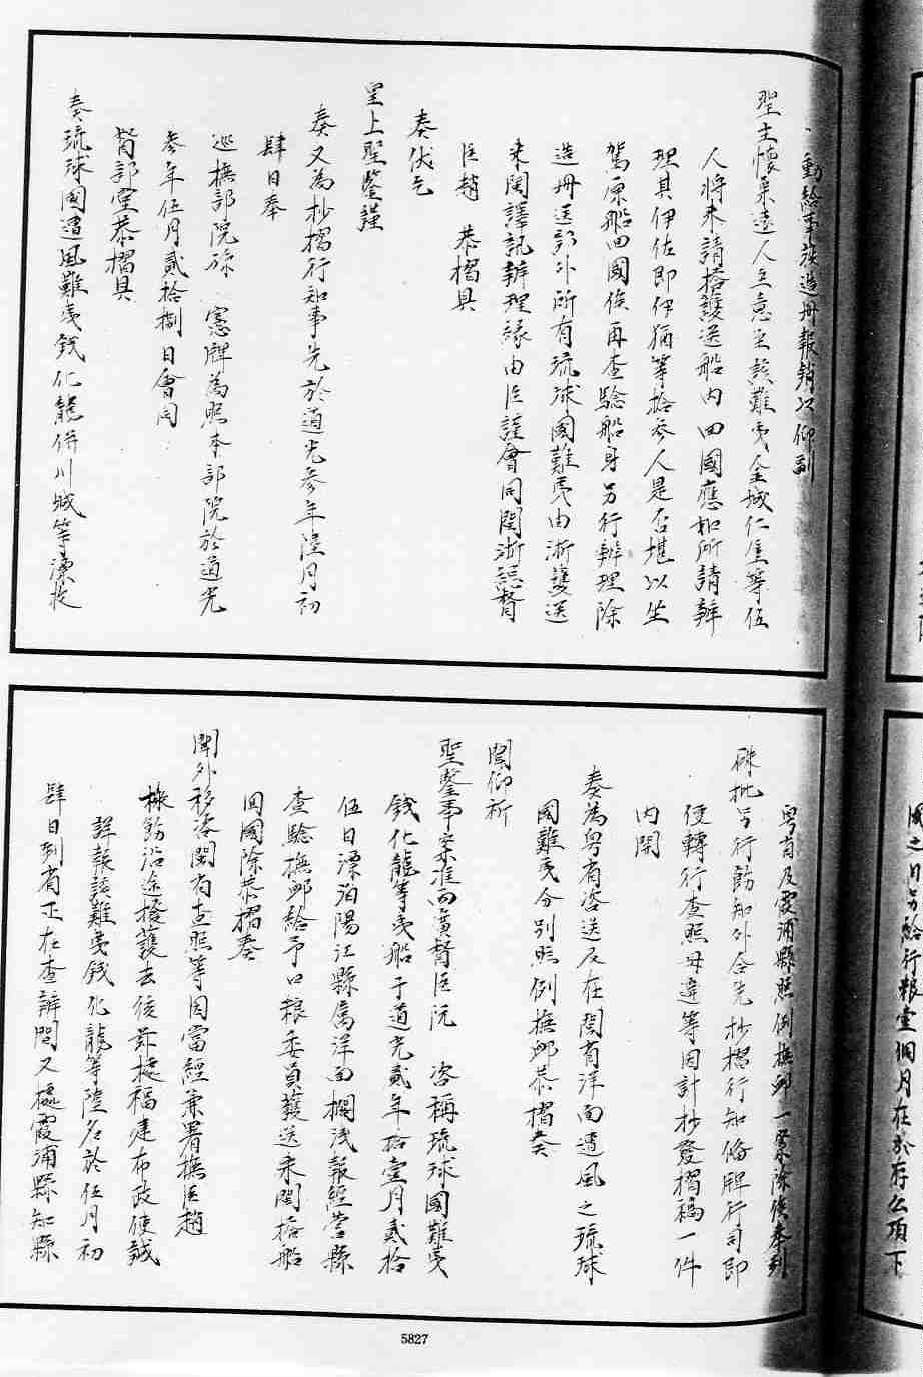 動給事竣造册報銷以仰副
聖主懷柔遠人之意至該難夷金城仁屋等伍
人將来請搭護送船内回國應如所請辦
理其伊佐即伊狥等拾参人是否堪以坐
駕原船回國俟再查驗船身另行辦理除
造册送部外所有琉球國難夷由浙護送
来閩譯訊辦理緣由臣謹會同閩浙總督
臣趙　恭摺具
奏伏乞
皇上聖鑒謹
奏又為抄摺行知事先於道光参年陸月初
肆日奉
巡撫部院　憲牌為照本部院於道光
参年伍月貳拾捌日會同
督部堂恭摺具
奏琉球國遭風難夷錢化龍併川城等漂收
粤省及霞浦縣照例撫卹一案除俟奉到
硃批另行飭知外合先抄摺行知脩牌行司即
便轉行查照毋違等因計抄發摺稿一件
内開
奏為粤省咨送及在閩省洋面遭風之琉球
國難夷分別照例撫卹恭摺奏
聞仰祈
聖鑒事案准兩廣督臣阮　咨稱琉球國難夷
錢化龍等夷船于道光貳年拾壹月貳拾
伍日漂泊陽江縣屬洋面擱淺報經營縣
查驗撫卹給予口粮委員護送来閩搭船
回國除恭摺奏
聞外移咨閩省查照等因當經兼署撫臣趙
檄飭沿途撥護去後茲據福建布政使誠
詳報該難夷錢化龍等陸名於伍月初
肆日到省正在查辦間又據霞浦縣知縣
國之日另給行粮壹個月在於存公項下
5827